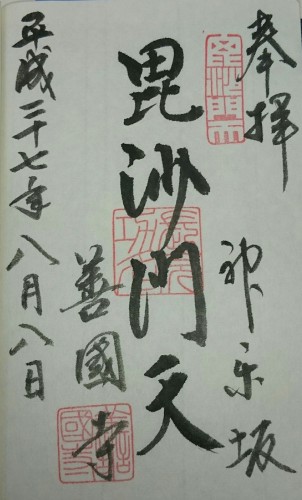 奉拝
神楽坂
毘沙門天
善國寺
平成二十七年八月八日